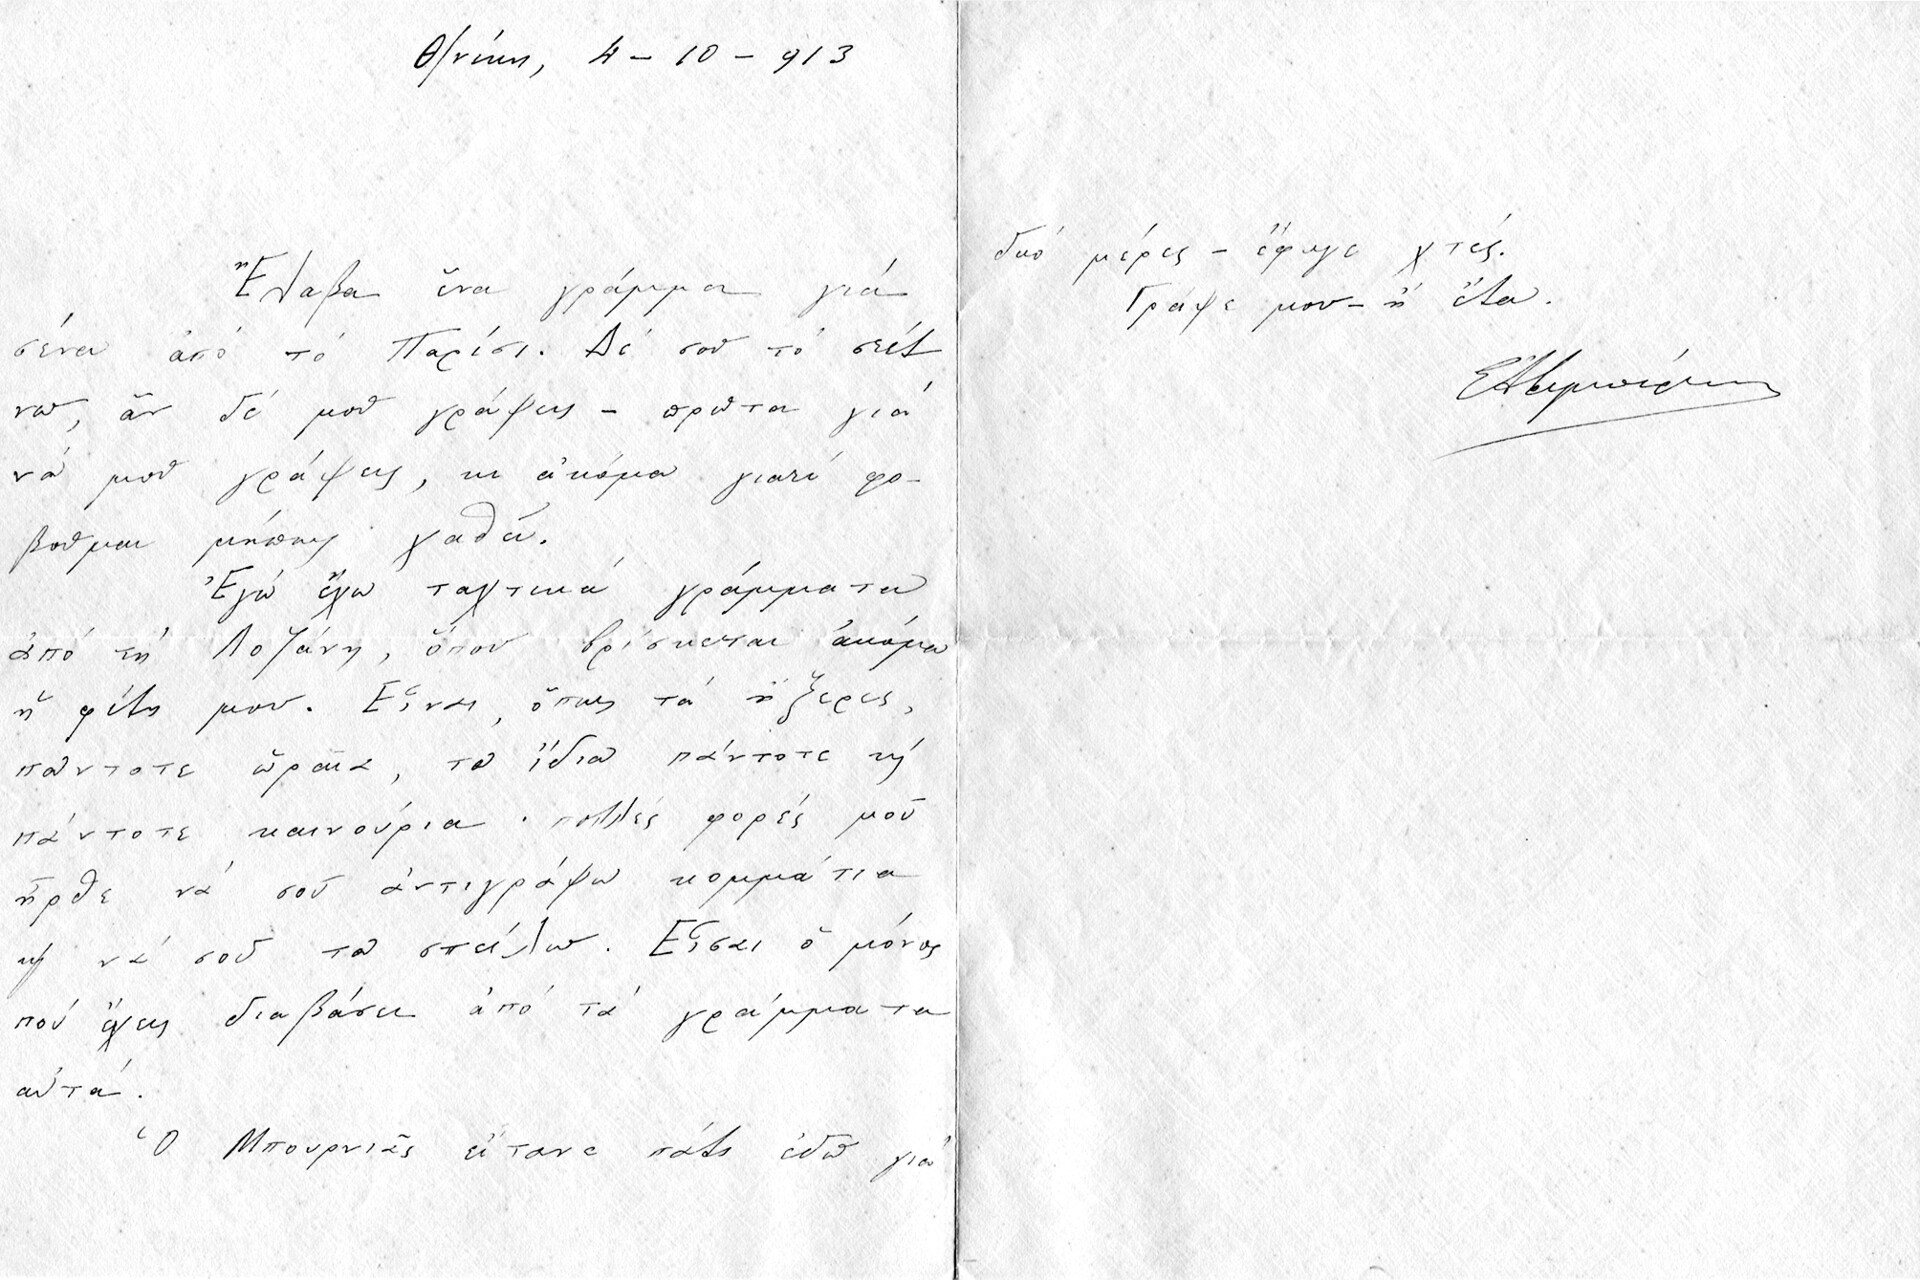 Θ/νίκη, 4 – 10 – 913
Ἔλαβα ἕνα γράμμα γιά
σένα ἀπό τό Παρίσι. Δέ σοῦ τό στέλ
νω, ἄν δέ μοῦ γράψεις – πρῶτα γιά
νά μοῦ γράψεις, κι ἀκόμα γιατί φο-
βοῦμαι μήπως χαθεῖ.
Ἐγώ ἔχω ταχτικά γράμματα
ἀπό τή Λοζάνη, ὅπου βρίσκεται ἀκόμα
ἡ φίλη μου. Εἶναι, ὅπως τά ἤξερες,
πάντοτε ὡραῖα, τά ἴδια πάντοτε κή
πάντοτε καινούρια · πολλές φορές μοῦ
ἦρθε νά σοῦ ἀντιγράψω κομμάτια
κή νά σοῦ τά στείλω. Εἶσαι ὁ μόνος
πού ἔχεις διαβάσει ἀπό τά γράμματα
αὐτά.
Ὁ Μπουρνιᾶς εἴτανε πάλι ἐδῶ γιά
δυό μέρες – ἔφυγε χτές.
Γράψε μου – ἤ ἔλα.